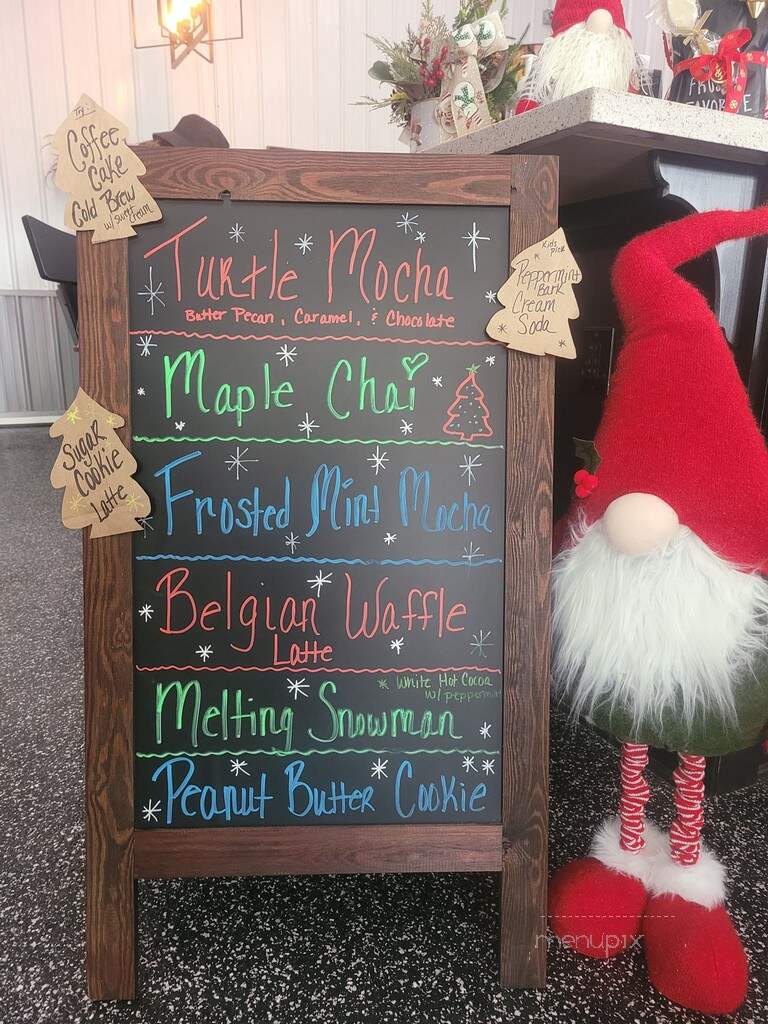 Try:
Coffee
Cake
Cold Brew
w/ sweet cream
Turtle Mocha
Butter Pecan, Caramel, & Chocolate
Kids Pick
Peppermint
Bark
Cream
Soda
Maple Chai
Sugar
Cookie
Latte
Frosted Mint Mocha
Belgian Waffle
Latte
White Hot Cocoa
w/ peppermint
Melting Snowman
Peanut Butter Cookie
menupix